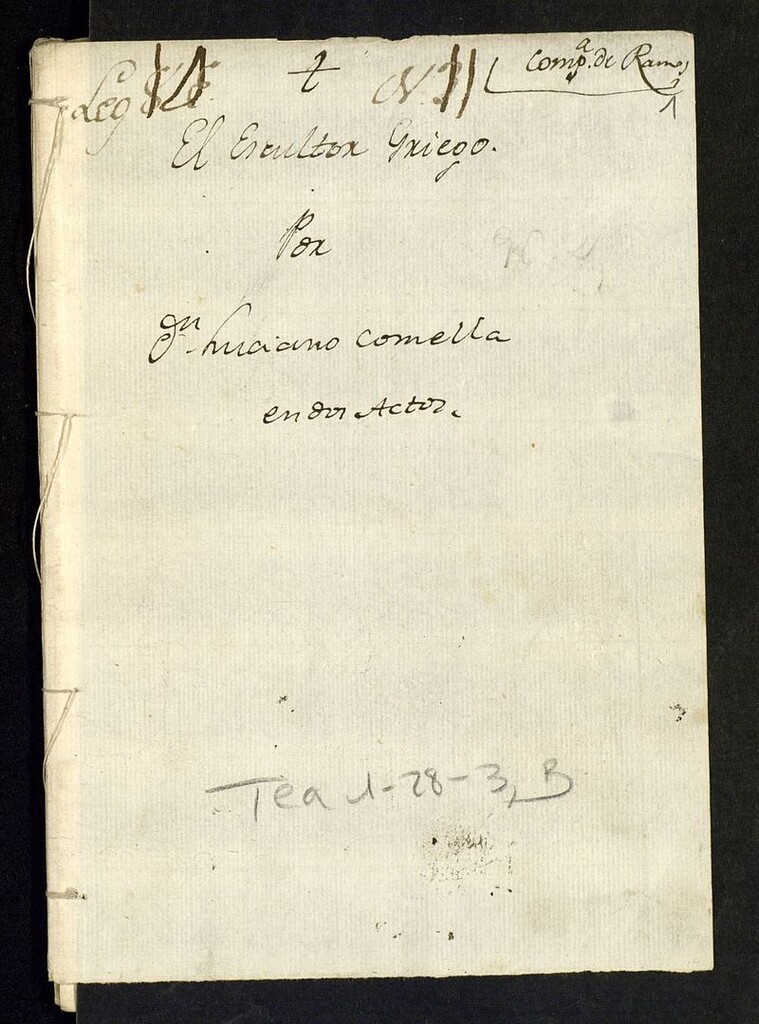 Leg 14
Comp.ª de Ramos
1
El Escultor Griego.
Por
Dn Luciano Comella
en dos Actos.
Tea 1-28-3, B